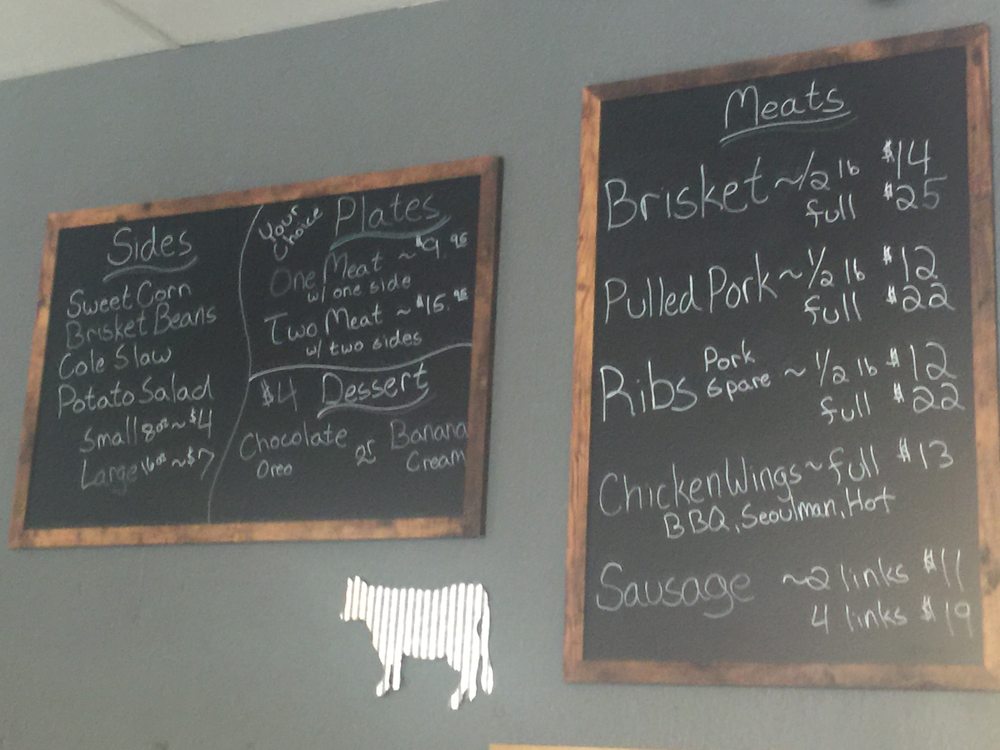 Sides
Sweet Corn
Brisket Beans
Cole Slaw
Potato Salad
Small 8oz ~ $4
Large 16oz ~ $7
Your Choice
Plates
One Meat ~ $9.95
w/ one side
Two Meat ~ $15.95
w/ two sides
$4 Dessert
Chocolate Oreo or Banana Cream
Meats
Brisket ~ 1/2 lb $14
full $25
Pulled Pork ~ 1/2 lb $12
full $22
Ribs Pork Spare ~ 1/2 lb $12
full $22
Chicken Wings ~ full $13
BBQ, Seoulman, Hot
Sausage ~ 2 links $11
4 links $19